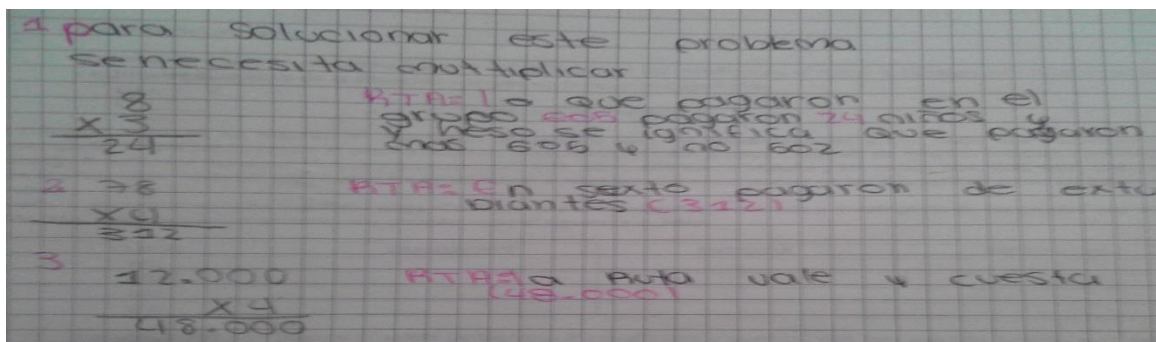 1 para solucionar este problema
se necesita multiplicar
8
x 3
24
RTA= lo que pagaron en el
grupo 605 pagaron 24 niños y
y heso se ignifica que pagaron
mas 605 y no 602
2 78
x4
312
RTA= En sexto pagaron de extu
diantes (312)
3
12.000
x 4
48.000
RTA= la Ruta vale y cuesta
(48.000)